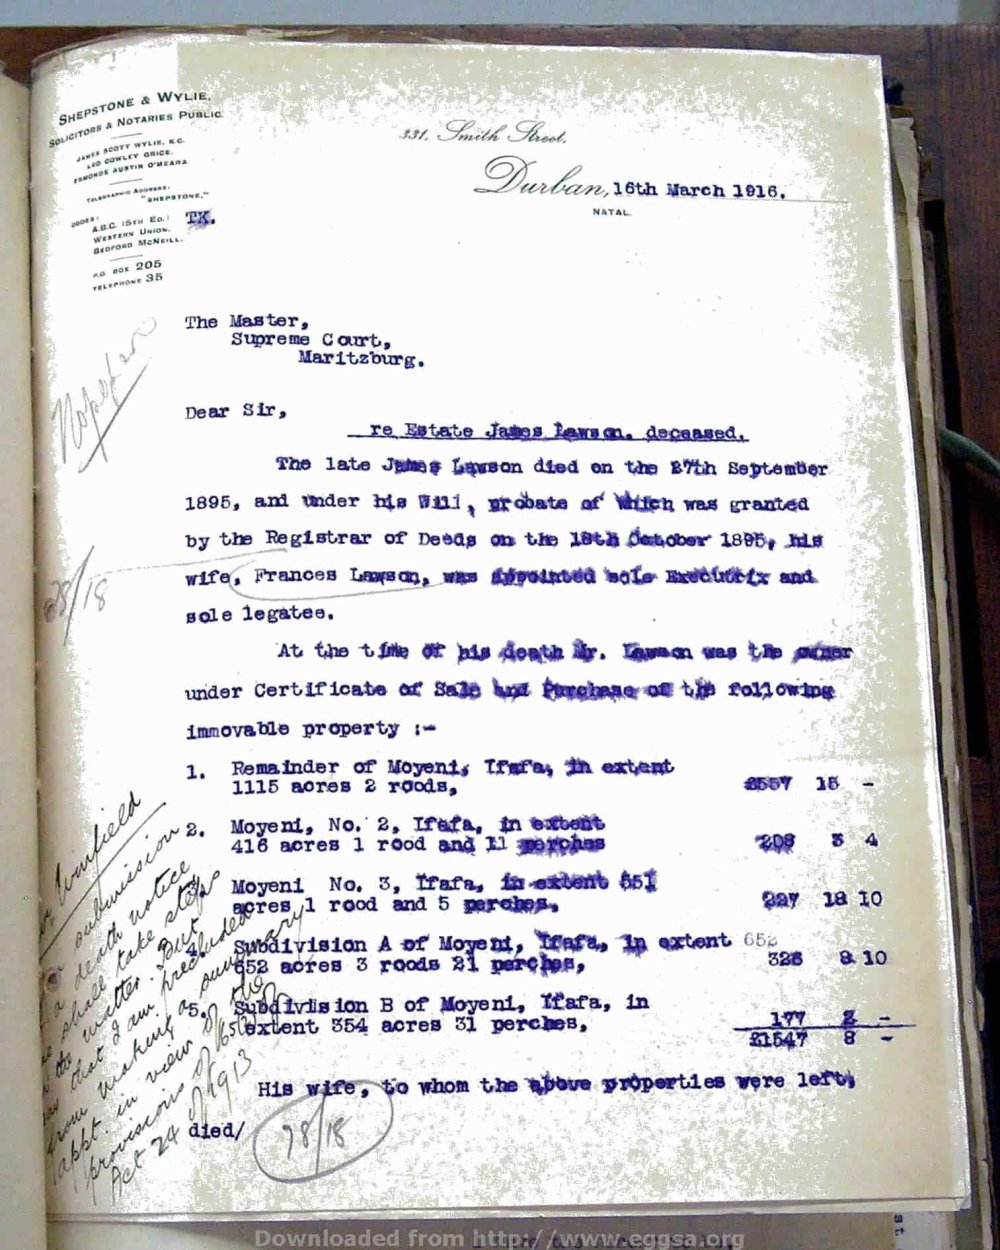 SHEPSTONE & WYLIE,
SOLICITORS & NOTARIES PUBLIC
JAMES SCOTT WYLIE, K.C.
LEO COWLEY GRICE.
EDMONDE AUSTIN O'MEARA
TELEGRAPHIC ADDRESS:
"SHEPSTONE."
CODES:
A.B.C. (5TH ED.)
WESTERN UNION.
BEDFORD McNEILL.
P.O. BOX 205
TELEPHONE 35
TK.
331, Smith Street,
Durban, 16th March 1916.
NATAL.
The Master,
Supreme Court,
Maritzburg.
Dear Sir,
re Estate James Lawson, deceased.
The late James Lawson died on the 27th September
1895, and under his Will, probate of which was granted
by the Registrar of Deeds on the 18th October 1895, his
wife, Frances Lawson, was appointed sole Executrix and
sole legatee.
28/18
At the time of his death Mr. Lawson was the owner
under Certificate of Sale and Purchase of the following
immovable property :-
1. Remainder of Moyeni, Ifafa, in extent
1115 acres 2 roods, £557 15 -
2. Moyeni, No. 2, Ifafa, in extent
416 acres 1 rood and 11 perches 208 3 4
3. Moyeni No. 3, Ifafa, in extent 551
acres 1 rood and 5 perches, 227 18 10
4. Subdivision A of Moyeni, Ifafa, in extent 652
652 acres 3 roods 21 perches, 326 8 10
5. Subdivision B of Moyeni, Ifafa, in
extent 354 acres 31 perches, 177 2 -
£1547 8 -
His wife, to whom the above properties were left,
died/
28/18
Winfield
submission
a death notice
shall take steps
in the matter. But
say that I am precluded
from making a summary
appt. in view of the
provisions of
Act 24 of 1913
Downloaded from http://www.eggsa.org